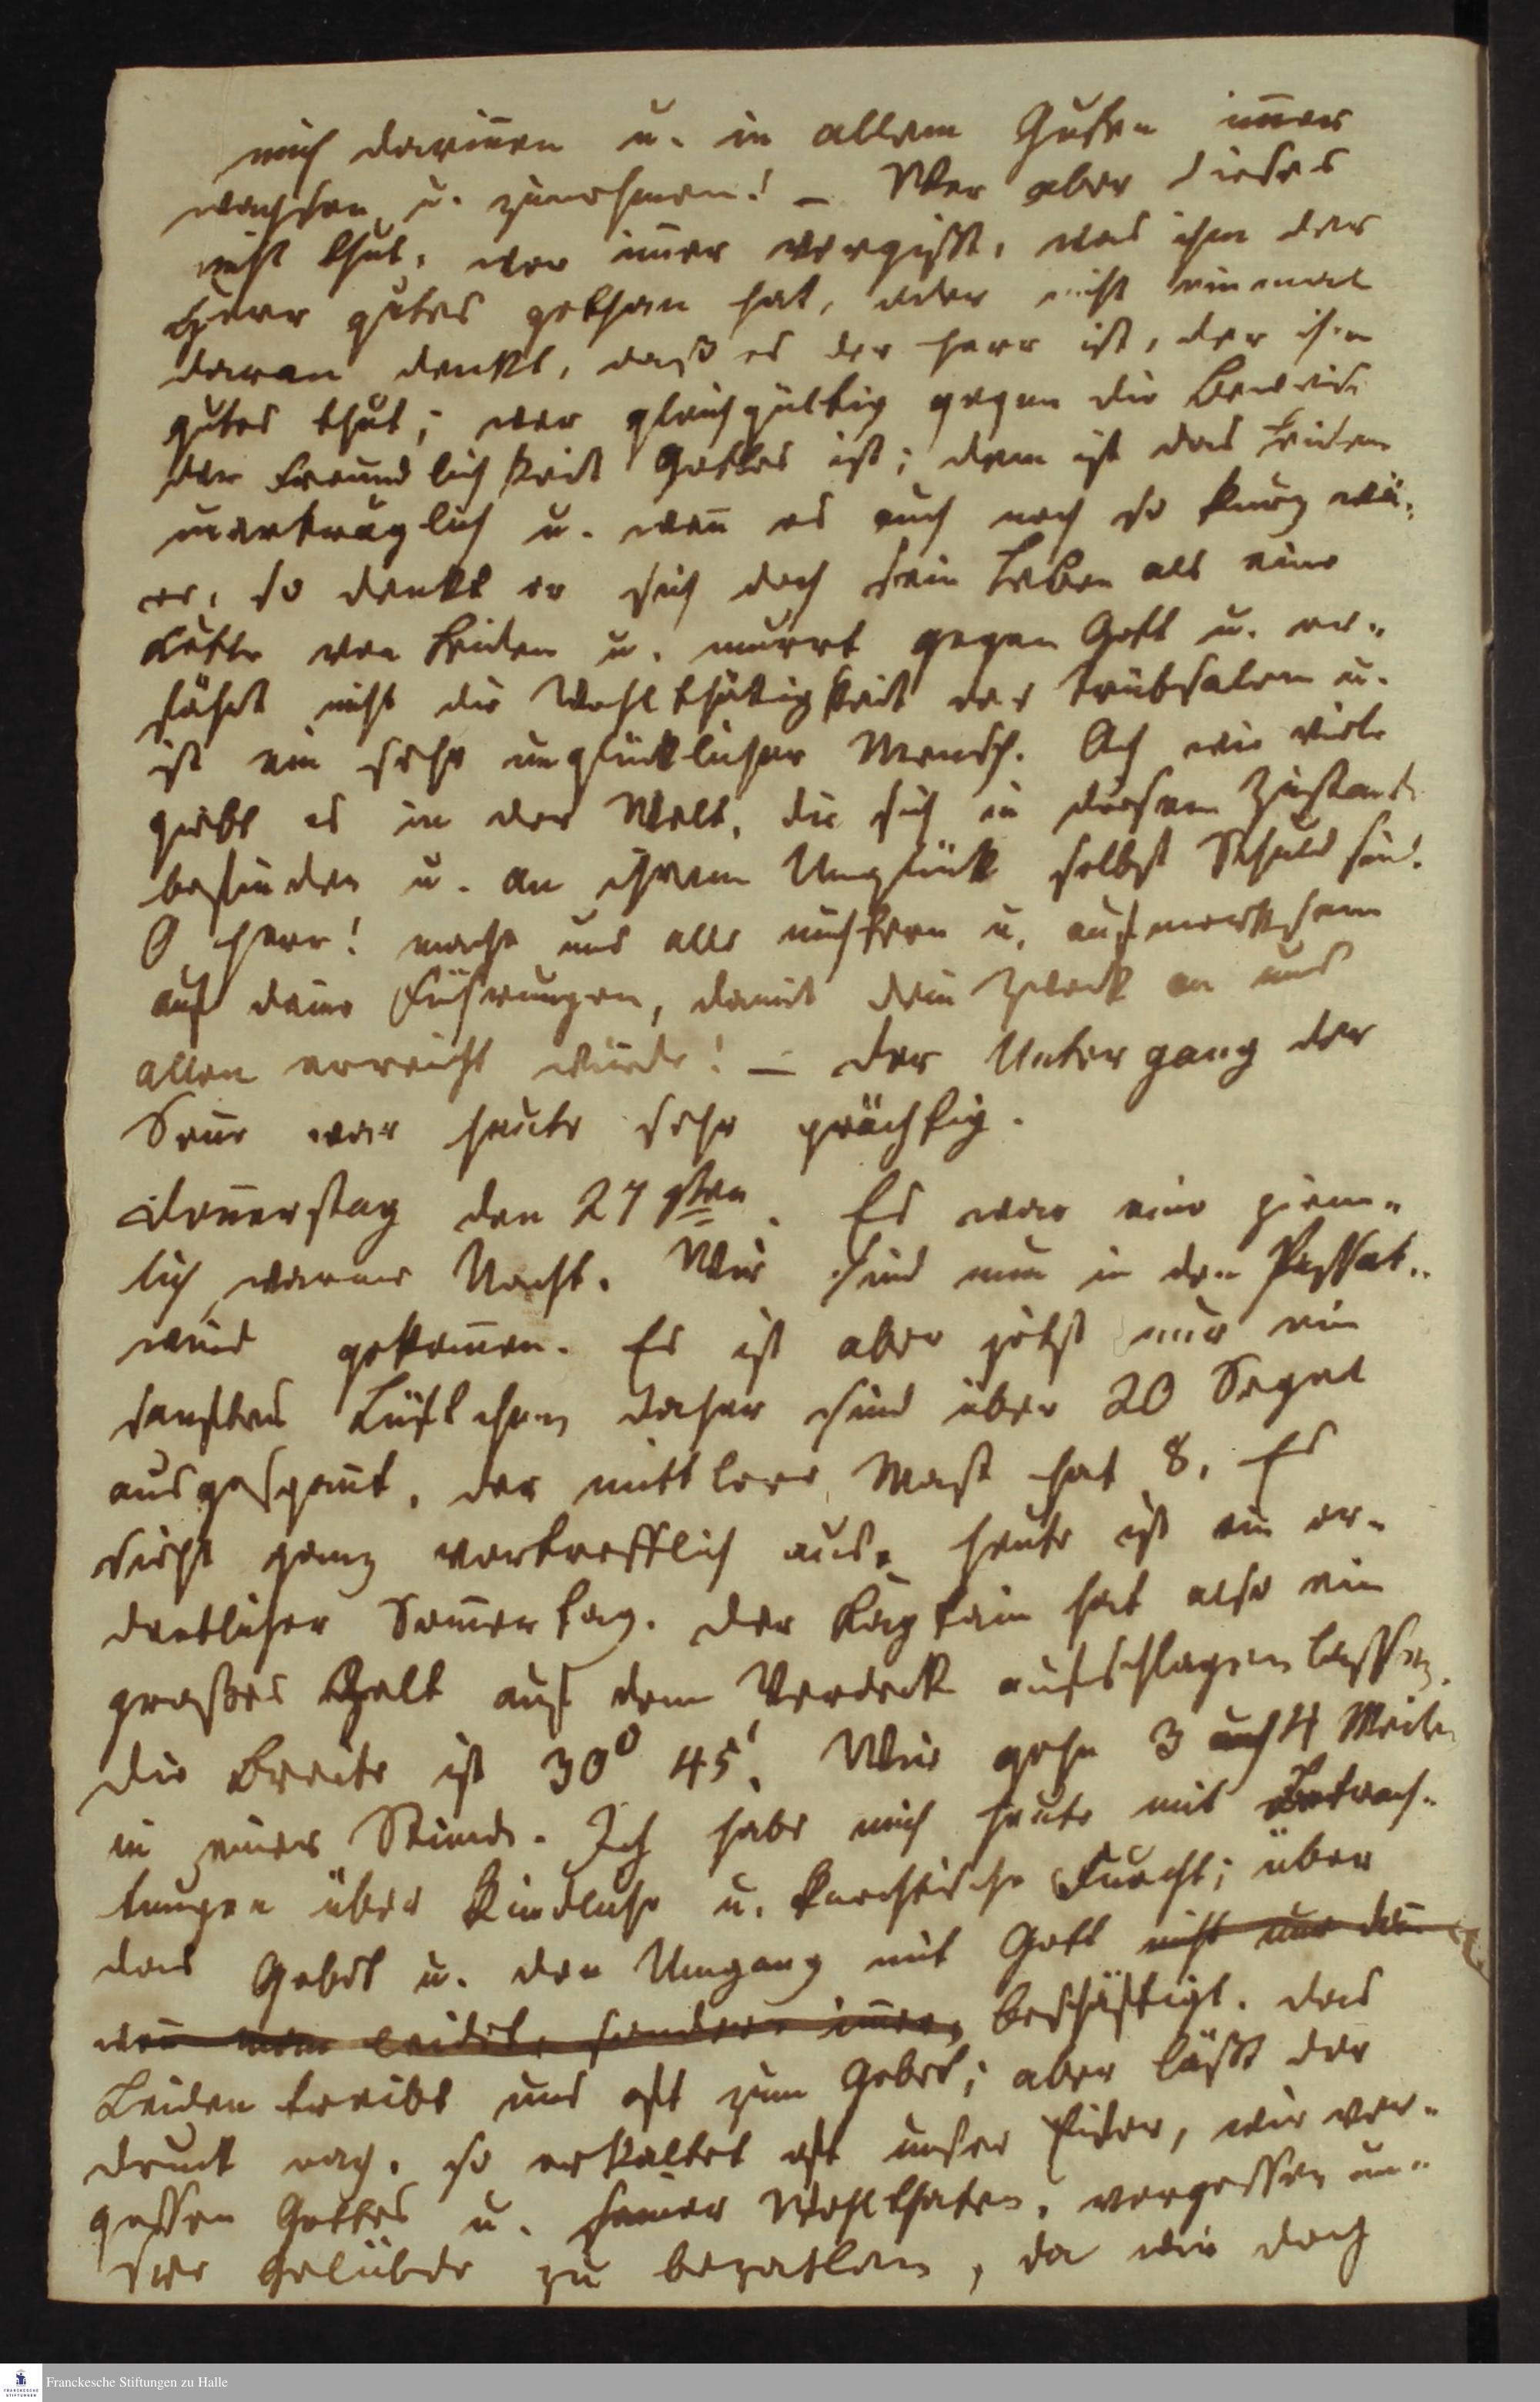 mich dariñen u. in allem Guten im̃er
wachsen u. zunehmen! – Wer aber dieses
nicht thut, wer im̃er vergißt, was ihm der
Herr gutes gethan hat, oder nicht einmal
daran denkt, daß es der Herr ist, der ihm
gutes thut; wer gleichgültig gegen die Beweise
der Freundlichkeit Gottes ist; dem ist das Leiden
unerträglich u. weñ es auch noch so kurz wä-
re, so denkt er sich doch sein Leben als eine
Kette von Leiden u. murrt gegen Gott u. er-
fährt nicht die Wohlthätigkeit der Trübsalen u.
ist ein sehr unglücklicher Mensch. Ach wie viele
giebt es in der Welt, die sich in diesem Zustande
befinden u. an ihrem Unglück selbst Schuld sind.
O Herr! mache uns alle nüchtern u. aufmerksam
auf deine Führungen, damit dein Zweck an uns
allen erreicht würde! – Der Untergang der
Soñe war heute sehr prächtig.
Doñerstag den 27sten. Es war eine ziem-
lich warme Nacht. Wir sind nun in den Passat-
wind gekom̃en. Es ist aber jetzt nur ein
sanftes Lüftchen daher sind über 20 Segel
ausgespañt, der mittlere Mast hat 8. Es
sieht ganz vortrefflich aus. Heute ist ein or-
dentlicher Som̃ertag. Der Kaptain hat also ein
großes Zelt auf dem Verdeck aufschlagen lassen.
Die Breite ist 30° 45'. Wir gehn 3 auch 4 Meilen
in einer Stunde. Ich habe mich heute mit Betrach-
tungen über kindliche u. knechtische Furcht; über
das Gebet u. den Umgang mit Gott nicht nur dañ
weñ man leidet, sondern im̃er, beschäftigt. Das
Leiden treibt uns oft zum Gebet; aber läßt der
Druck nach, so erkaltet oft unser Eifer, wir ver-
gessen Gottes u. seiner Wohlthaten, vergessen un-
sre Gelübde zu bezahlen, da wir doch
Franckesche Stiftungen zu Halle